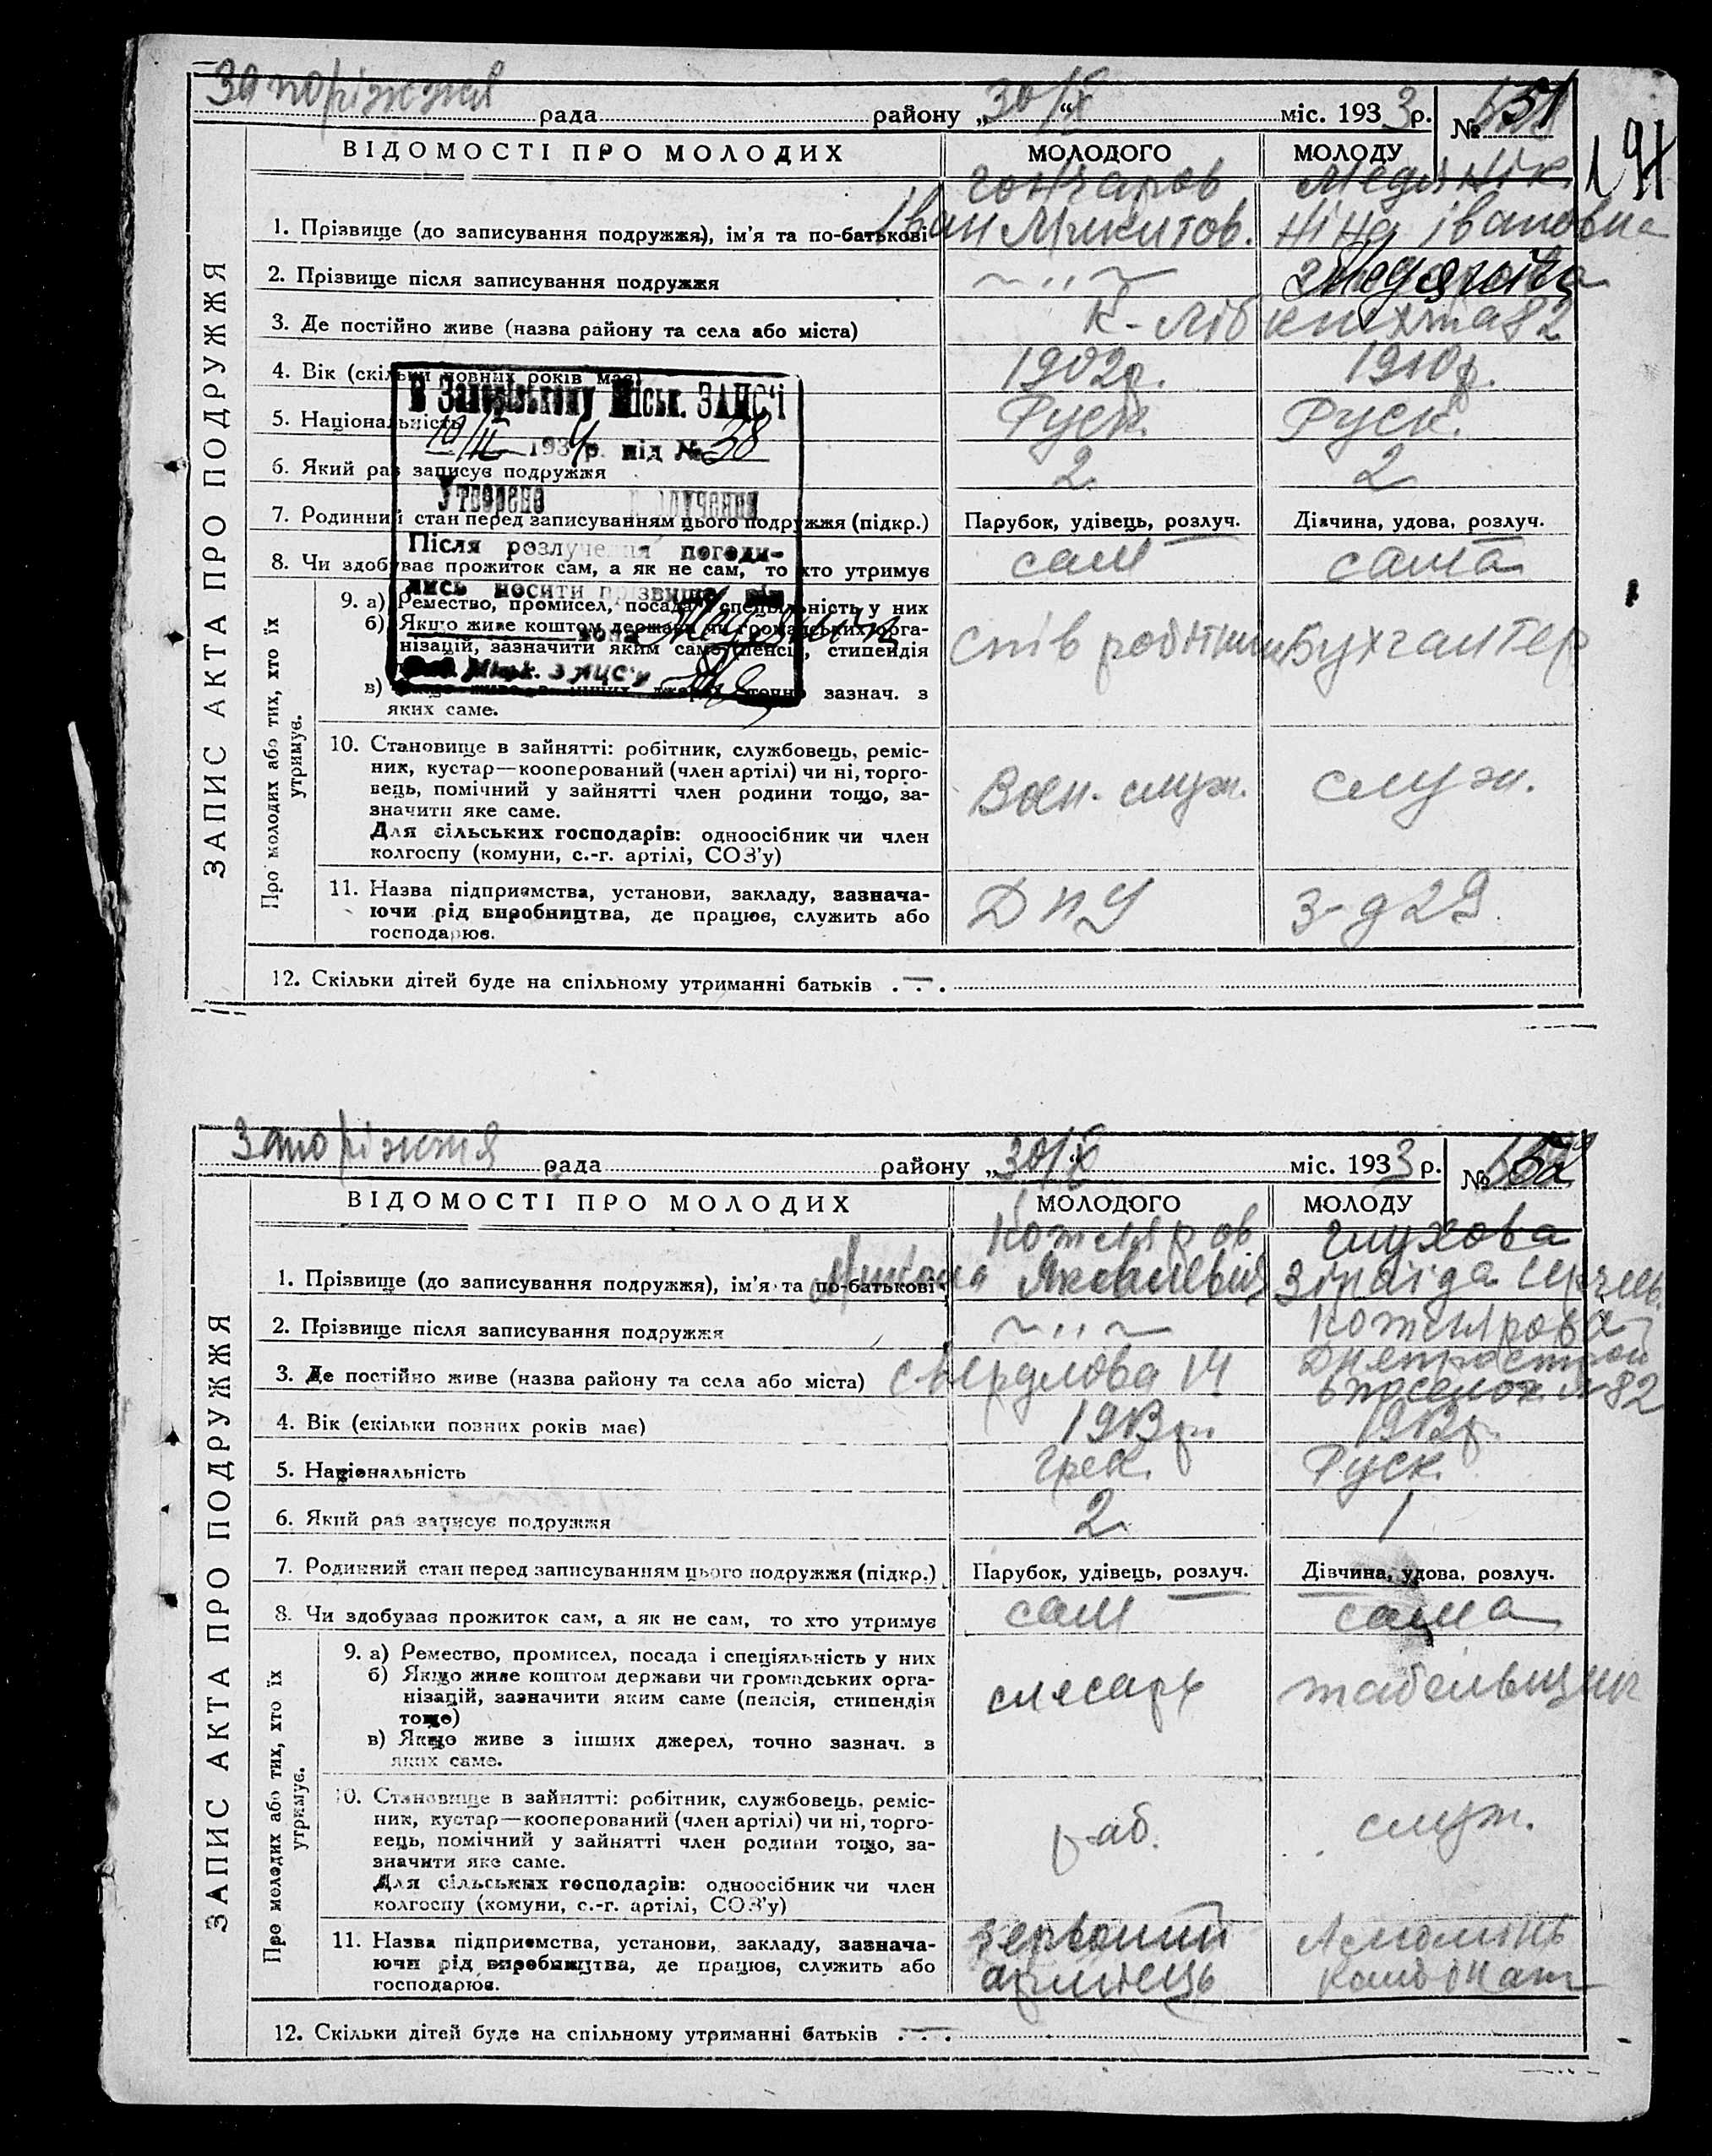 Запоріжжя рада району „30/X“ міс. 1933 р. № 51
191
ВІДОМОСТІ ПРО МОЛОДИХ МОЛОДОГО МОЛОДУ
Гончаров
1. Прізвище (до записування подружжя), ім'я та по-батькові Іван Микитов. Ніна Івановна
2. Прізвище після записування подружжя ~ „ ~
3. Де постійно живе (назва району та села або міста) К-Лібкнихта 82
4. Вік (скільки повних років має) 1902р. 1910р.
5. Національність Руск. Руск.
6. Який раз записує подружжя 2. 2
7. Родинний стан перед записуванням цього подружжя (підкр.) Парубок, удівець, розлуч. Дівчина, удова, розлуч.
8. Чи здобуває прожиток сам, а як не сам, то хто утримує сам сама
9. а) Ремество, промисел, посада і спеціяльність у них
б) Якщо живе коштом держави чи громадських орга-
нізацій, зазначити яким саме (пенсія, стипендія
в) Якщо живе з інших джерел, точно зазнач. з
яких саме.
Бухгалтер
10. Становище в зайнятті: робітник, службовець, реміс-
ник, кустар—кооперований (член артілі) чи ні, торго-
вець, помічний у зайнятті член родини тощо, за-
значити яке саме.
Для сільських господарів: одноосібник чи член
колгоспу (комуни, с.-г. артілі, СОЗ'у)
Воен. служ. служ.
11. Назва підприямства, установи, закладу, зазнача-
ючи рід виробництва, де працює, служить або
господарює.
ДПУ З-д 29
12. Скільки дітей буде на спільному утриманні батьків . — .
ЗАПИС АКТА ПРО ПОДРУЖЖЯ
Про молодих або тих, хто їх
утримує.
В Запорізькому Міськ. ЗАГСі
10/II 1934р. під № 38
Утворено розлучення
Після розлучення погоди-
лись носити прізвище він
вона
Запорізька рада району „30/X“ міс. 1933 р. № 52
ВІДОМОСТІ ПРО МОЛОДИХ МОЛОДОГО МОЛОДУ
Котляров Глухова
1. Прізвище (до записування подружжя), ім'я та по-батькові Микола Яковлевич Зінаїда Сергеев.
2. Прізвище після записування подружжя ~ „ ~ Котлярова
3. Де постійно живе (назва району та села або міста) Свердлова 14 Днепрострой
6 поселок №82
4. Вік (скільки повних років має) 1913р. 1912р.
5. Національність Грек. Руск.
6. Який раз записує подружжя 2. 1
7. Родинний стан перед записуванням цього подружжя (підкр.) Парубок, удівець, розлуч. Дівчина, удова, розлуч.
8. Чи здобуває прожиток сам, а як не сам, то хто утримує сам сама
9. а) Ремество, промисел, посада і спеціяльність у них
б) Якщо живе коштом держави чи громадських орга-
нізацій, зазначити яким саме (пенсія, стипендія
тощо)
в) Якщо живе з інших джерел, точно зазнач. з
яких саме.
слесарь табельщик
10. Становище в зайнятті: робітник, службовець, реміс-
ник, кустар—кооперований (член артілі) чи ні, торго-
вець, помічний у зайнятті член родини тощо, за-
значити яке саме.
Для сільських господарів: одноосібник чи член
колгоспу (комуни, с.-г. артілі, СОЗ'у)
раб. служ.
11. Назва підприємства, установи, закладу, зазнача-
ючи рід виробництва, де працює, служить або
господарює.
Червоний Алюмінь
армієць комбінат
12. Скільки дітей буде на спільному утриманні батьків . — .
ЗАПИС АКТА ПРО ПОДРУЖЖЯ
Про молодих або тих, хто їх
утримує.